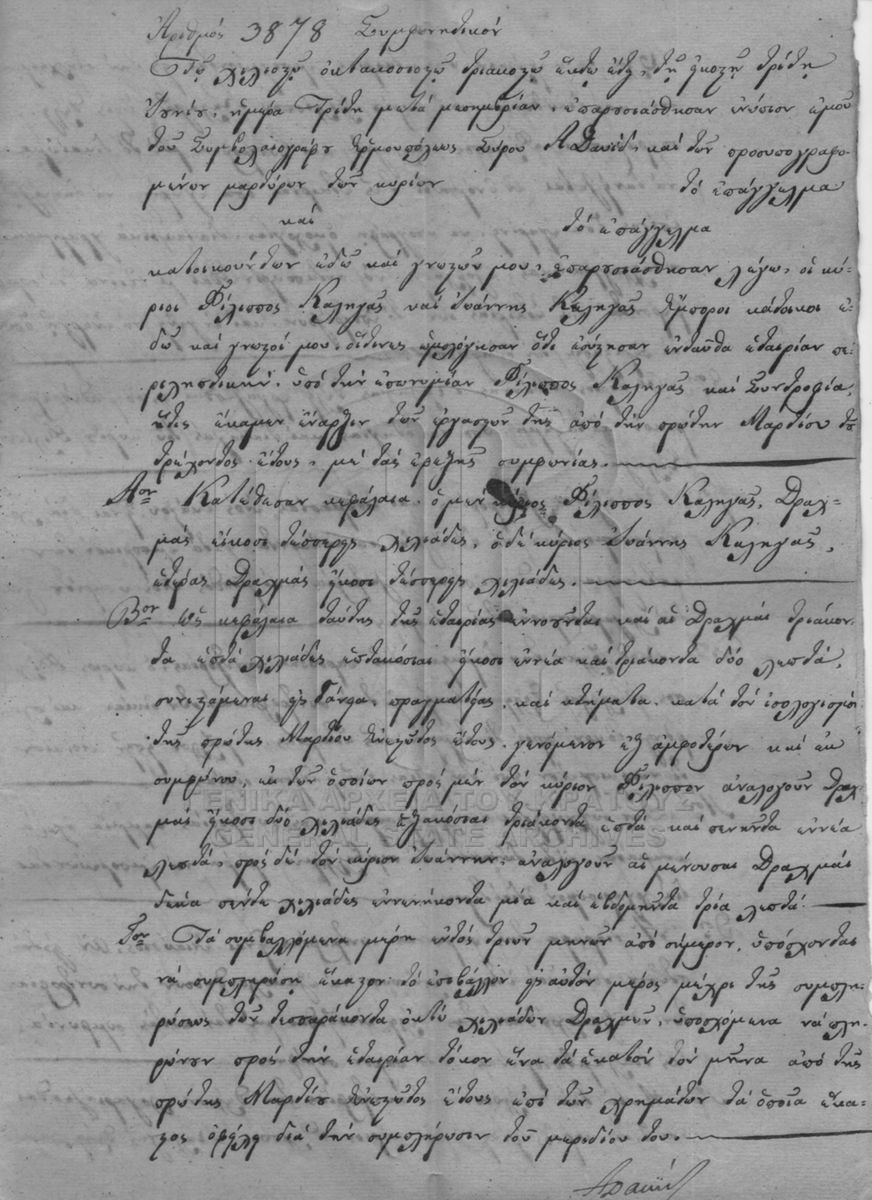 Ἀριθμός 3878 Συμφωνητικόν
Τῷ χιλιοστῷ ὀκτακοσιοστῷ τριακοστῷ ἕκτῳ ἔτει, τῇ εἰκοστῇ τρίτῃ
ἡμέρᾳ Τρίτῃ μετά μεσημβρίαν, ἐπαρουσιάσθησαν ἐνώπιον ἐμοῦ
τοῦ Συμβολαιογράφου Ἑρμουπόλεως Σύρου Α Δαυίδ, καί τῶν προσυπογραφο-
μένων μαρτύρων τῶν κυρίων τό ἐπάγγελμα
καί τό ἐπάγγελμα
κατοικούντων ἐδῶ καί γνωστῶν μου, ἐπαρουσιάσθησαν λέγω, οἱ κύ-
ριοι Φίλιππος Καληγᾶς καί Ἰωάννης Καληγᾶς ἔμποροι κάτοικοι ἐ-
δῶ καί γνωστοί μου, οἵτινες ὡμολόγησαν ὅτι ἐσύστησαν ἐνταῦθα ἑταιρίαν πε-
ριληπτικήν, ὑπό τήν ἐπωνυμίαν Φίλιππος Καληγᾶς καί Συντροφία,
ἥτις ἔκαμεν ἔναρξιν τῶν ἐργασιῶν της ἀπό τήν πρώτην Μαρτίου τοῦ
τρέχοντος ἔτους, μέ τάς ἐφεξῆς συμφωνίας.
Αον Κατέθεσαν κεφάλαια, ὁ μέν κύριος Φίλιππος Καληγᾶς, Δραχ-
μάς εἴκοσι τέσσερεις χιλιάδες, ὁ δέ κύριος Ἰωάννης Καληγᾶς,
ἑτέρας Δραχμάς εἴκοσι τέσσερεις χιλιάδες.
Βον Ὡς κεφάλαια ταύτης τῆς ἑταιρίας ἐννοοῦνται καί αἱ Δραχμαί τριάκον-
τα ἑπτά χιλιάδες ἑπτακόσιαι εἴκοσι ἐννέα καί τριάκοντα δύο λεπτά,
συνιστάμεναι εἰς δάνεια, πραγματείας, καί κτήματα, κατά τόν ἰσολογισμόν
τῆς πρώτης Μαρτίου ἐνεστῶτος ἔτους, γενόμενον ἐξ ἀμφοτέρων καί ἐκ
συμφώνου, ἐκ τῶν ὁποίων πρός μέν τόν κύριον Φίλιππον ἀναλογοῦν Δραχ-
μαί εἴκοσι δύο χιλιάδες ἑξακόσιαι τριάκοντα ἑπτά καί πενῆντα ἐννέα
λεπτά, πρός δέ τόν κύριον Ἰωάννην, ἀναλογοῦν αἱ μένουσαι Δραχμαί
δέκα πέντε χιλιάδες ἐννενήκοντα μία καί ἑβδομῆντα τρία λεπτά.
Γον Τά συμβαλλόμενα μέρη ἐντός τριῶν μηνῶν ἀπό σήμερον, ὑπόσχονται
νά συμπληρώσῃ ἕκαστον τό ἐπιβάλλον εἰς αὐτόν μέρος μέχρι τῆς συμπλη-
ρώσεως τῶν τεσσαράκοντα ὀκτώ χιλιάδων Δραχμῶν, ὑποσχόμενα νά πλη-
ρώνουν πρός τήν ἑταιρίαν τόκον ἕνα τά ἑκατόν τόν μῆνα ἀπό τῆς
πρώτης Μαρτίου ἐνεστῶτος ἔτους ἐπί τῶν χρημάτων τά ὁποῖα ἕκα-
στος ὀφείλει διά τήν συμπλήρωσιν τοῦ μεριδίου του.
ΓΕΝΙΚΑ ΑΡΧΕΙΑ ΤΟΥ ΚΡΑΤΟΥΣ
GENERAL STATE ARCHIVES